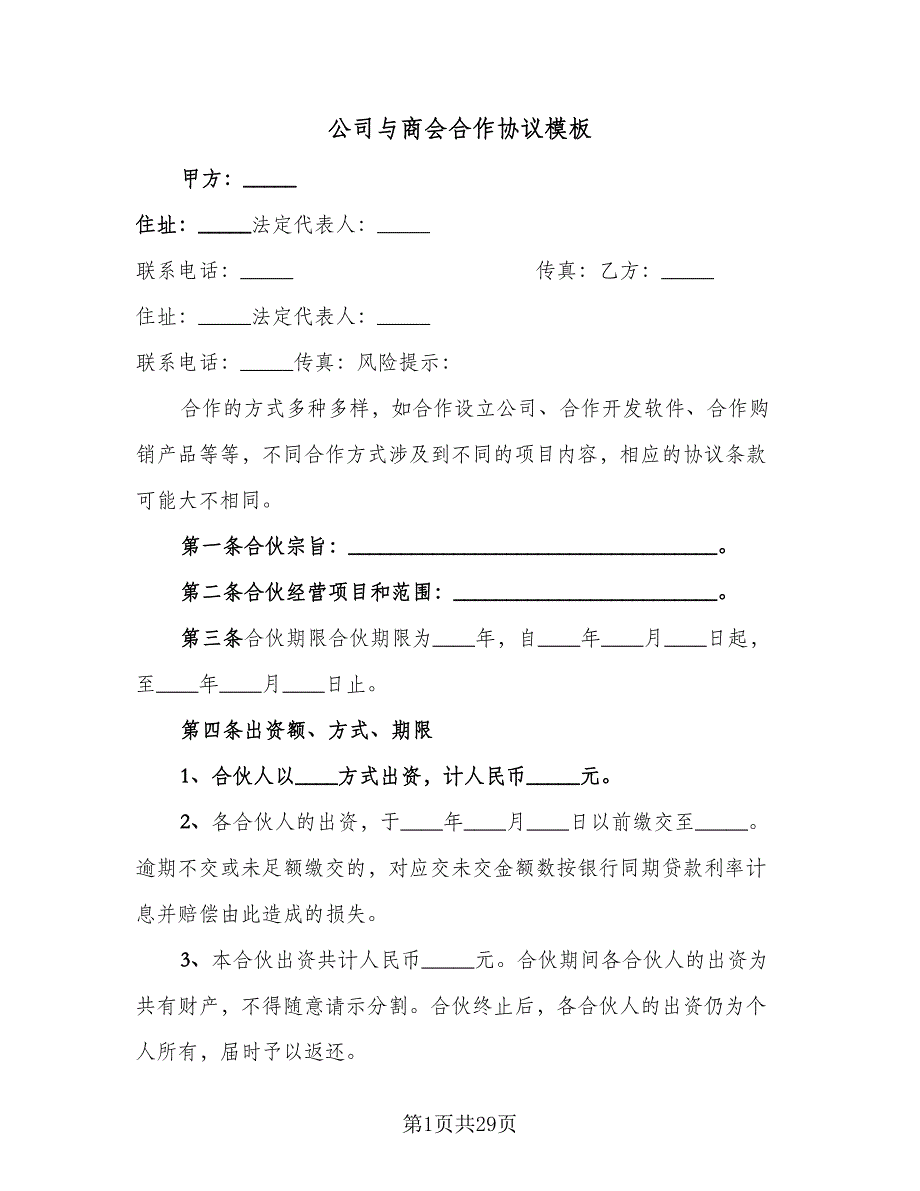 公司与商会合作协议模板
甲方：_____
住址：_____法定代表人：_____
联系电话：_____ 传真：乙方：_____
住址：_____法定代表人：_____
联系电话：_____传真：风险提示：
合作的方式多种多样，如合作设立公司、合作开发软件、合作购
销产品等等，不同合作方式涉及到不同的项目内容，相应的协议条款
可能大不相同。
第一条合伙宗旨：___________________________________。
第二条合伙经营项目和范围：_________________________。
第三条合伙期限合伙期限为____年，自____年____月____日起，
至____年____月____日止。
第四条出资额、方式、期限
1、合伙人以____方式出资，计人民币_____元。
2、各合伙人的出资，于____年____月____日以前缴交至_____。
逾期不交或未足额缴交的，对应交未交金额数按银行同期贷款利率计
息并赔偿由此造成的损失。
3、本合伙出资共计人民币_____元。合伙期间各合伙人的出资为
共有财产，不得随意请示分割。合伙终止后，各合伙人的出资仍为个
人所有，届时予以返还。
第1页共29页